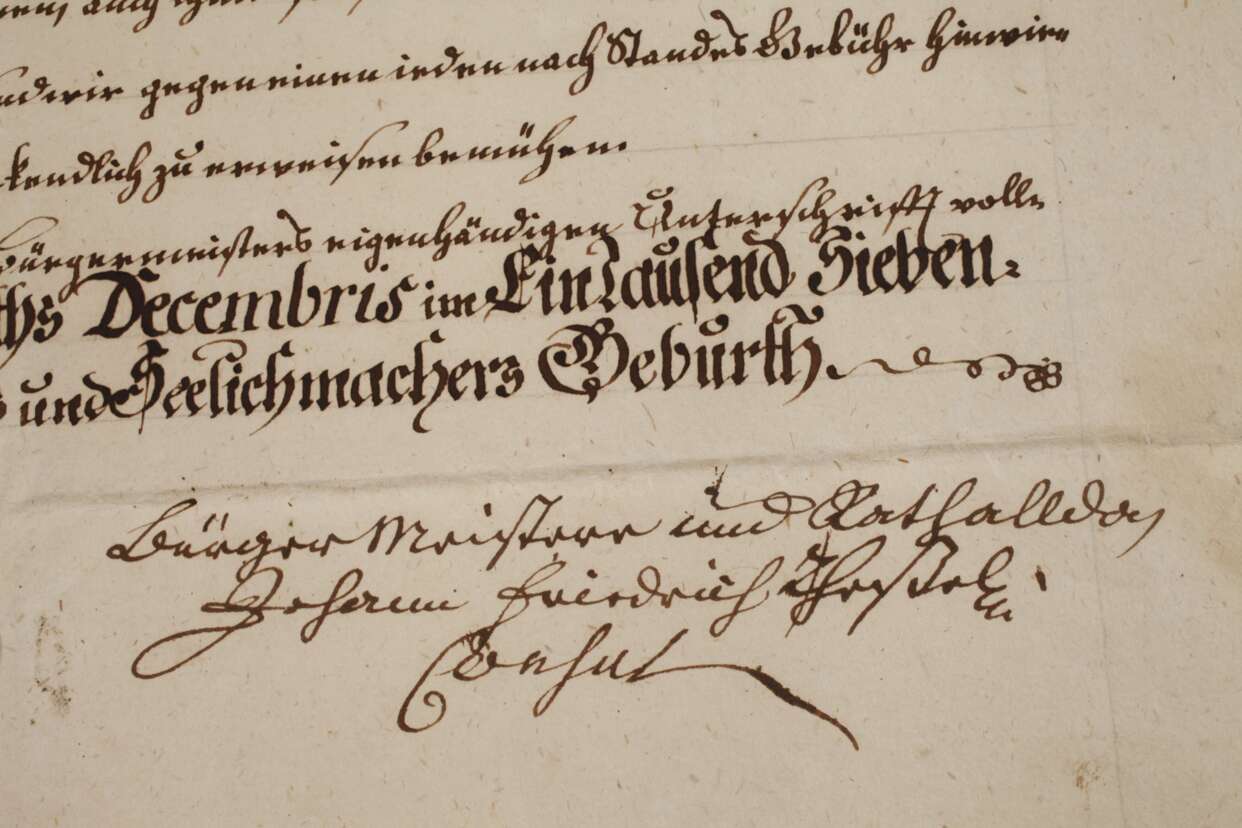 und wir gegen einen ieden nach Standes Gebühr hinwie-
kendlich zu erweisen bemühen.
Bürgermeisters eigenhändigen Unterschrifft volle
ths Decembris im Ein Tausend Sieben-
und Seelichmachers Geburth.
Bürger Meistere und Rath allda
Johann Friedrich
Consul